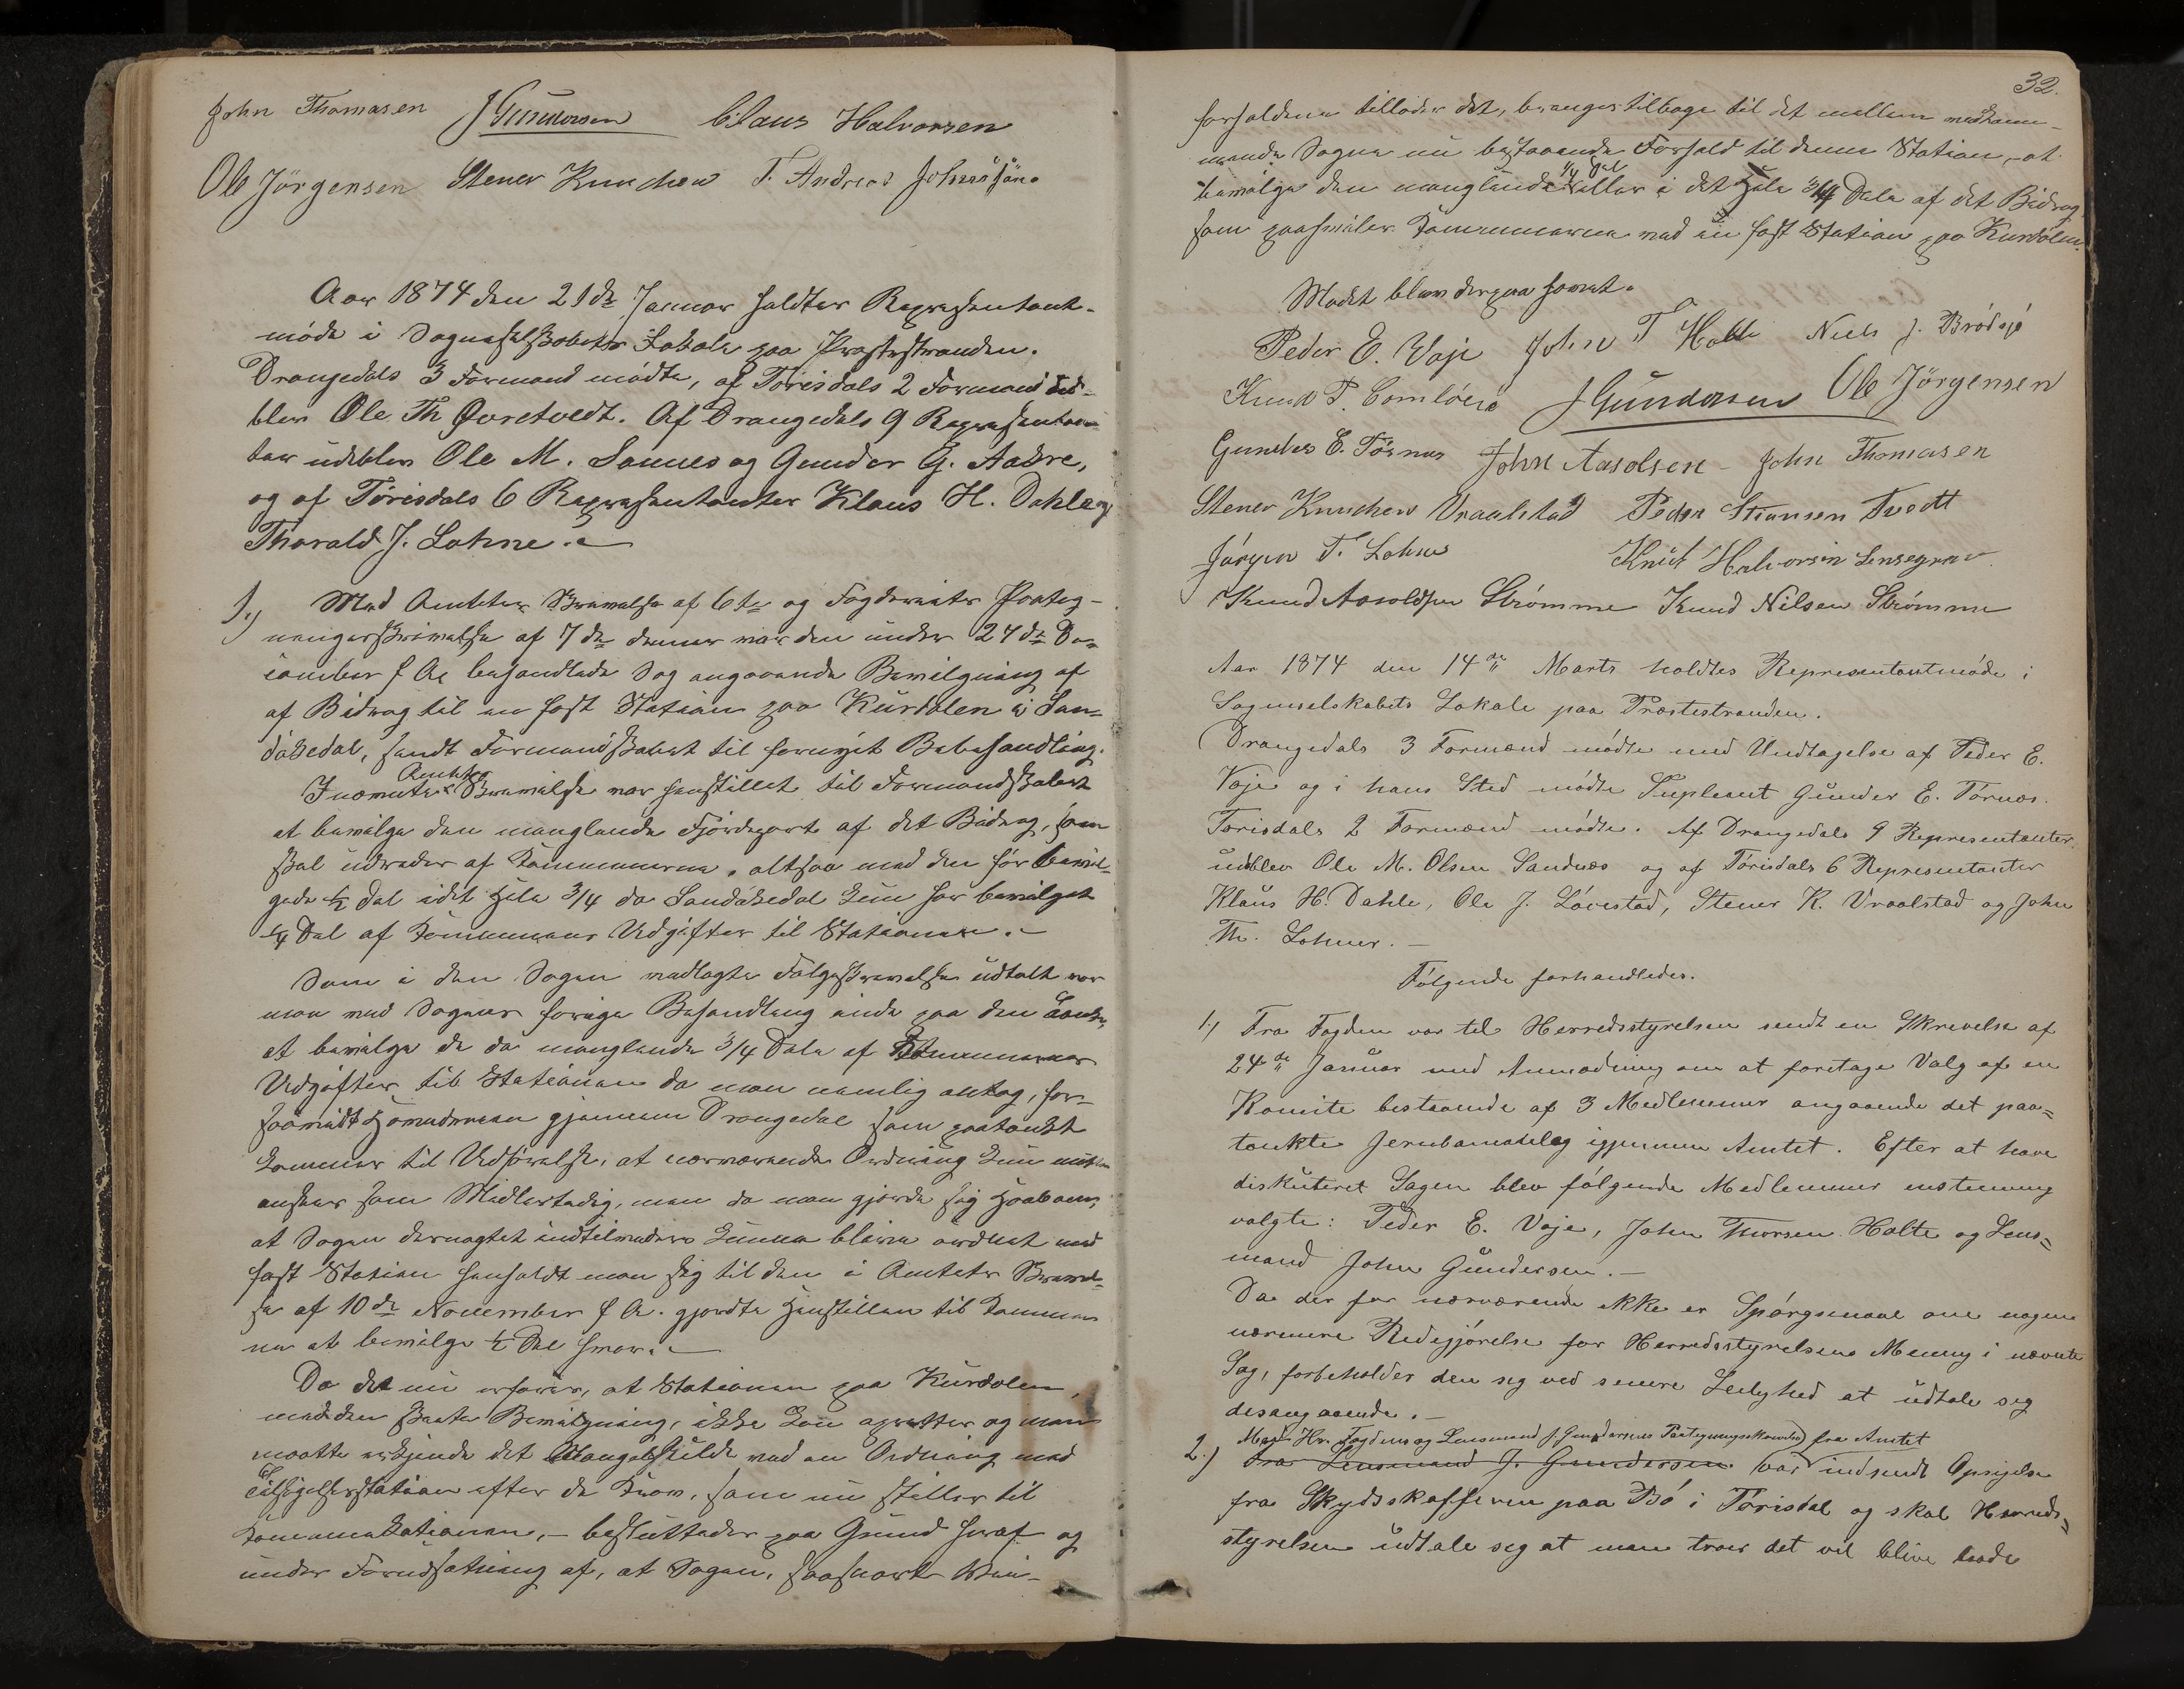 John Thomasen J Gundersen Claus Halvorsen
Ole Jörgensen Stener Knudsen T. Andreas Johns
Aar 1874 den 21de Januar holdtes Repræsentant-
møde i Sogneselskabets Lokale paa Præstestranden.
Drangedals 3 Formænd mødte, af Tørisdals 2 Formænd ude-
blev Ole Th Øvretvedt. Af Drangedals 9 Repræsentan-
ter udeblev Ole M. Sannes og Gunder G. Aakre,
og af Tørisdals 6 Repræsentanter Klaus H. Dahle og
Thorald J. Lohne.
1.) Med Amtets Skrivelse af 6te og Fogderiets Paateg-
ningsskrivelse af 7de dennes var den under 27de De-
cember f A behandlede Sag angaaende Bevilgning af
af Bidrag til en fast Station paa Kurdølen i San-
dökedal, sendt Formandskabet til fornyet Behandling.
I nævnte Amtets Skrivelse var henstillet til Formandskabet
at bevilge den manglende Fjördepart af det Bidrag, som
skal udredes af Kommunerne, altsaa med den før bevil-
gede ½ Del i det Hele 3/4 da Sandökedal kun har bevilget
¼ Del af Kommunens Udgifter til Stationen.
Som i den Sagen vedlagte Følgeskrivelse udtalt var
man ved Sagens forrige Behandling inde paa den Tanke,
at bevilge de da manglende 3/4 Dele af Kommunernes
Udgifter til Stationen da man nemlig antog, for-
saavidt Hovedveien gjennem Drangedal som paatænkt
kommer til Udførelse, at nærværende Ordning kun maatte
ansees som Midlertidig, men da man gjorde sig Haab om,
at Sagen deruagtet indtilvidere kunne blive ordnet med
fast Station henholdt man sig til den i Amtets Skrivel-
se af 10de November f A. gjordte Henstillen til Kommu-
nen at bevilge ½ Del heraf.
Da det nu erfares, at Stationen paa Kurdølen,
med den skeete Bevilgning, ikke kan oprettes og man
maatte erkjende det Mangelfulde ved en Ordning med
Tilsigelsesstation efter de Krav, som nu stilles til
Kommunikationen, - besluttedes paa Grund heraf og
under Forudsætning af, at Sagen, saasnart Vei-
32.
forholdene tillader det, bringes tilbage til det mellem vedkom-
mende Sogne nu bestaaende Forhold til denne Station, at
bevilge den manglende 1/4 Del eller i det Hele 3/4 Dele af det Bidrag
som paahviler Kommunerne ved en fast Station paa Kurdølen.
Mødet blev derpaa hævet.
Peder E. Voje John T Holte Niels J. Brödsjö
Knud P. J Gundersen Ole Jörgensen
Gunder E. Törnes John Aasolsen John Thomasen
Stener Knudsen Vraalstad Peder Tvedt
Jörgen T. Lohne Knut Halvorsen
Knud Aasoldsen Strömme Knud Nilsen Strömme
Aar 1874 den 14de Marts holdtes Representantmøde i
Sogneselskabets Lokale paa Præstestranden.
Drangedals 3 Formænd mødte med Undtagelse af Peder E.
Voje og i hans Sted mødte Supleant Gunder E. Tørnes.
Tørisdals 2 Formænd mødte. Af Drangedals 9 Representanter
udblev Ole M. Olsen Sandnæs og af Tørisdals 6 Representanter
Klaus H. Dahle, Ole J. Løvestad, Stener K. Vraalstad og John
Th. Lohner.
Følgende forhandledes.
1.) Fra Fogden var til Herredsstyrelsen sendt en Skrivelse af
24de Januar med Anmodning om at foretage Valg af en
Komite bestaaende af 3 Medlemmer angaaende det paa=
tænkte Jernbaneanlæg igjennem Amtet. Efter at have
diskuteret Sagen blev følgende Medlemmer enstemmig
valgte: Peder E. Voje, John Thorsen Holte og Lens=
mand John Gundersen.
Da der for nærværende ikke er Spørgsmaal om nogen
nærmere Redegjørelse for Herredsstyrelsens Mening i nævnte
Sag, forbeholder den sig ved senere Leilighed at udtale sig
desangaaende.
Med Hr. Fogdens og Lensmand J. Gundersens Paategningsskrivelse fra Amtet
2.) Fra Lensmand J. Gundersen var indsendt Opsigelse
fra Skydsskafferen paa Bø i Tørisdal og skal Herreds=
styrelsen udtale sig at man troer det vil blive baade